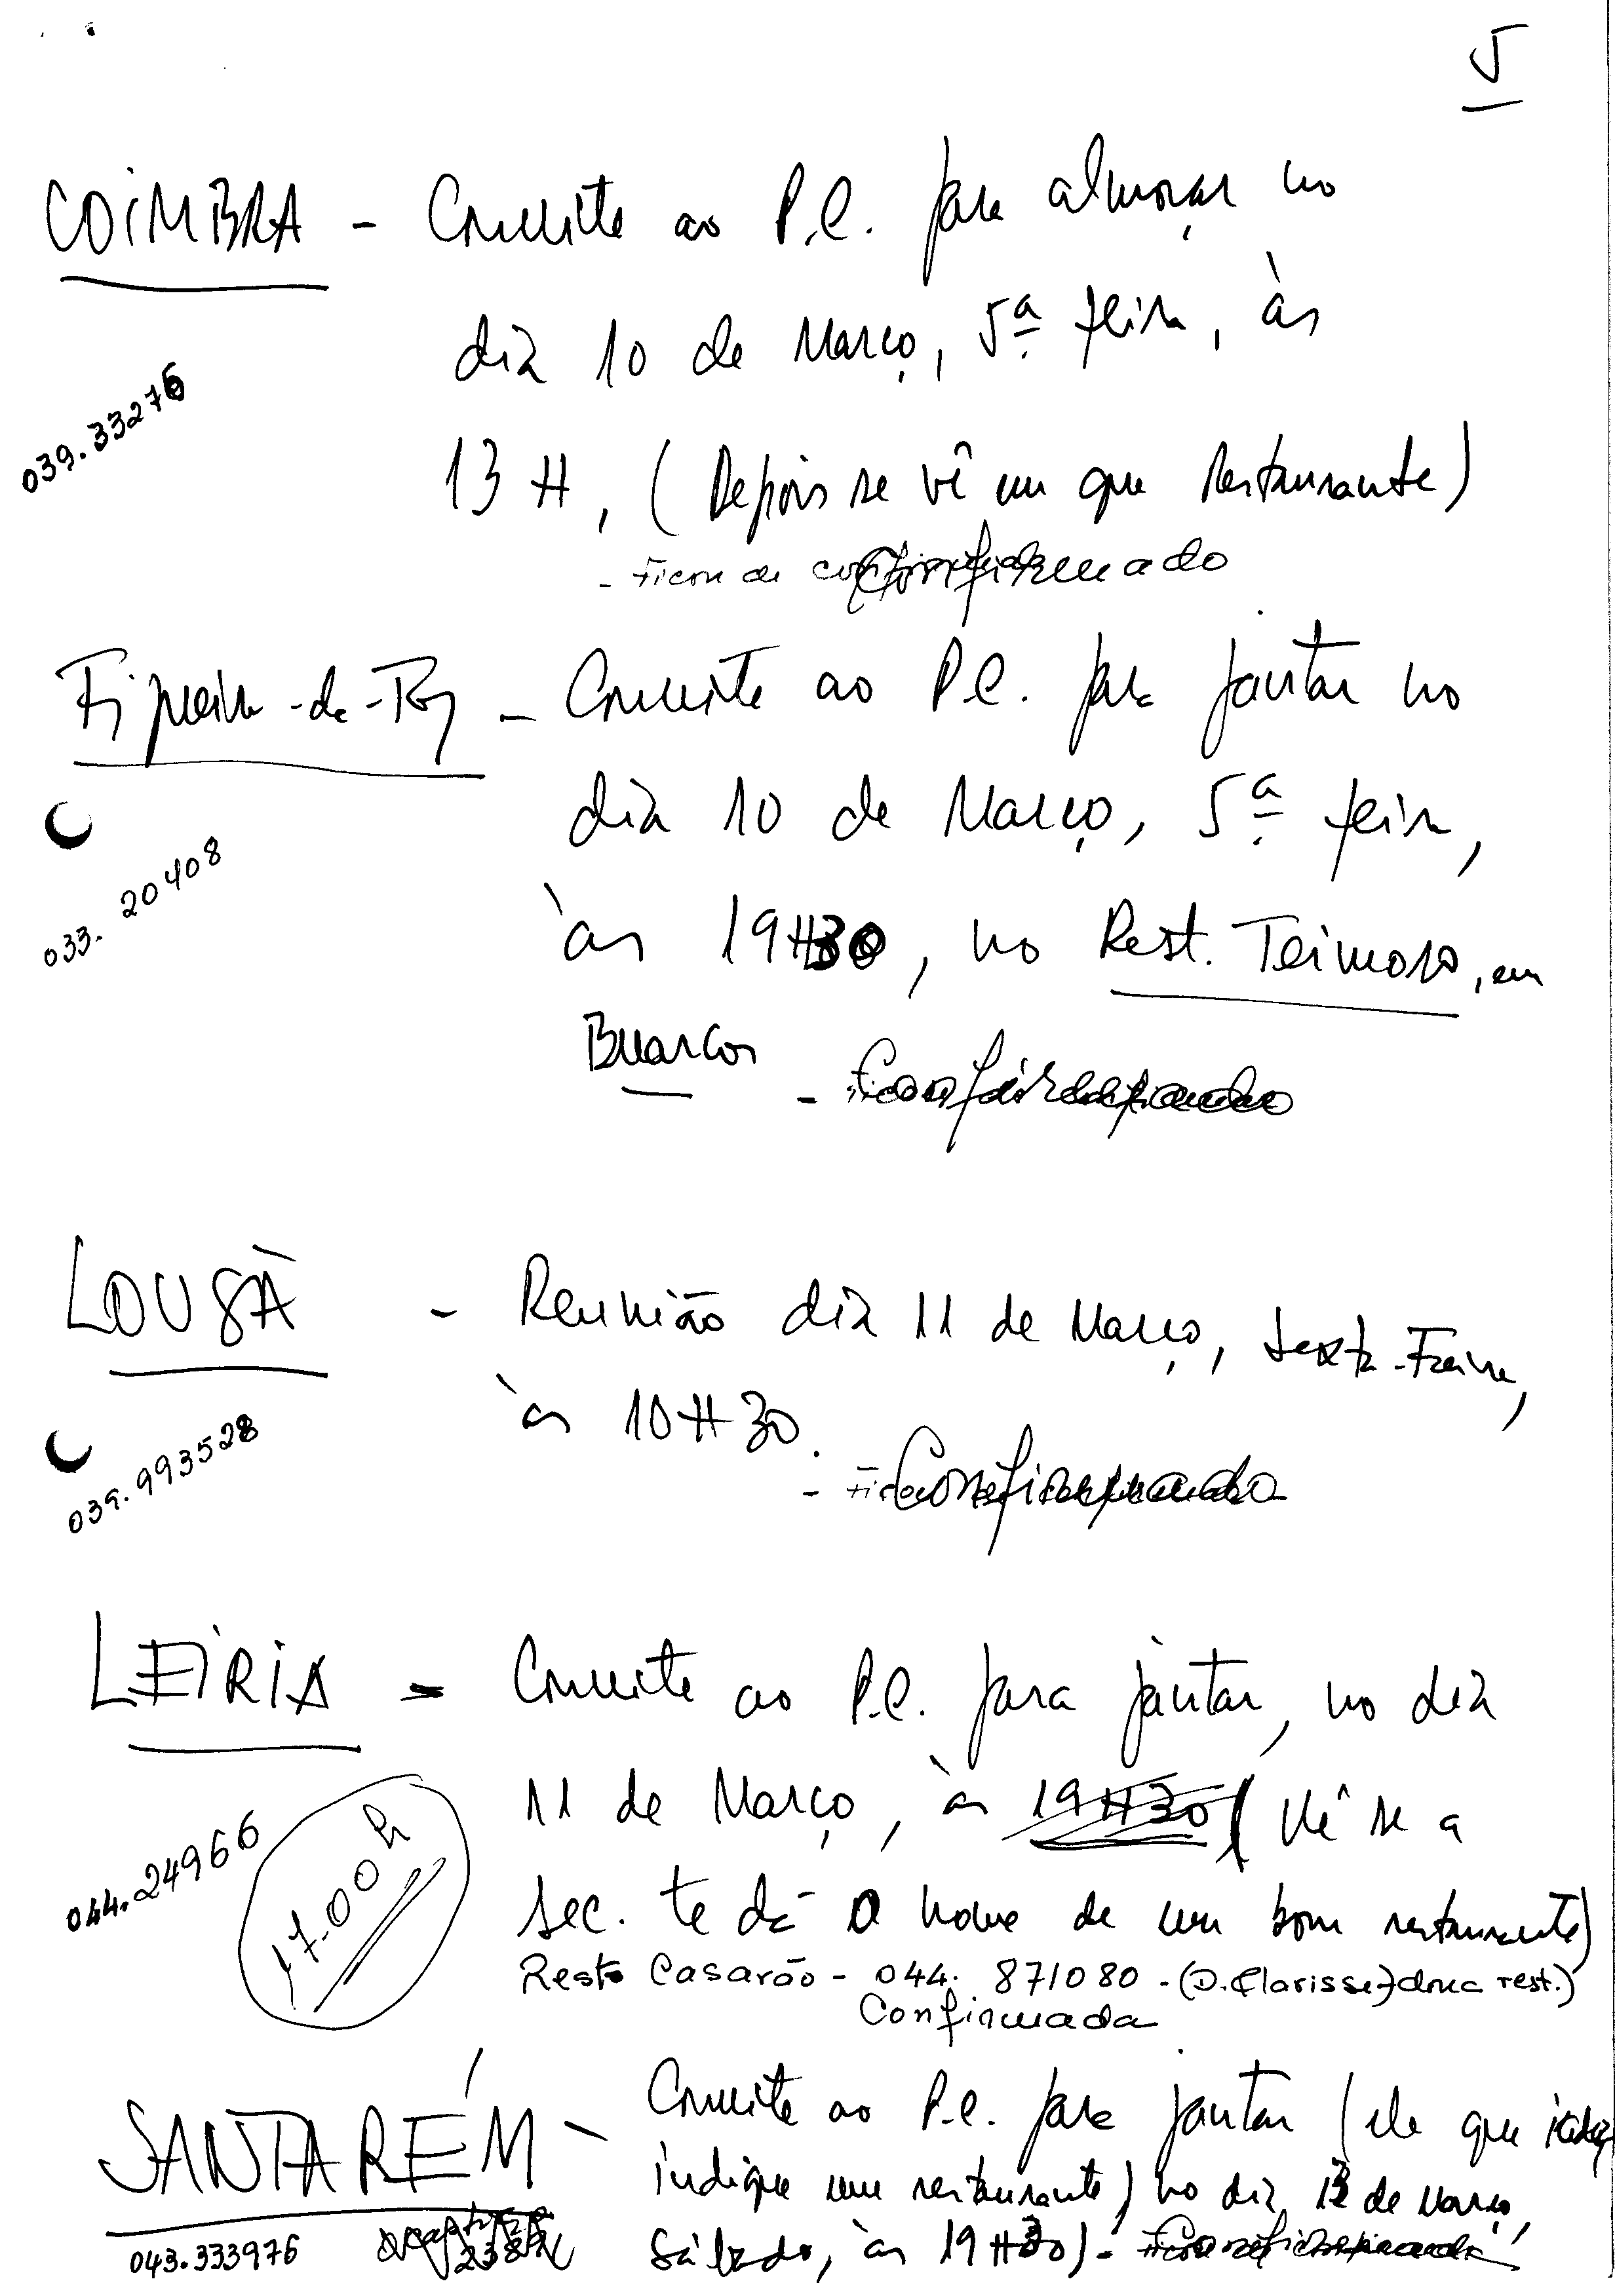 5
COIMBRA - Convite ao P.C. para almoçar no
dia 10 de Março, 5ª feira, às
039.33276
13H, (Depois se vê em que restaurante)
- Ficou de confirmar Confirmado
Figueira-da-Foz - Convite ao P.C. para jantar no
dia 10 de Março, 5ª feira,
033. 20408
às 19H30, no Rest. Teimoso, em
Buarcos - Confirmado
LOUSÃ - Reunião dia 11 de Março, Sexta-Feira,
às 10H30.
039.993528
- Confirmado
LEIRIA - Convite ao P.C. para jantar, no dia
11 de Março, às 19H30 (Vê se a
044.24966
17.00h
sec. te dá o nome de um bom restaurante)
Rest. Casarão - 044. 871080 - (D. Clarisse) dona rest.)
Confirmada
SANTARÉM - Convite ao P.C. para jantar (ele que
indique um restaurante) no dia 12 de Março,
043.333976
Sábado, às 19H30) - Confirmada